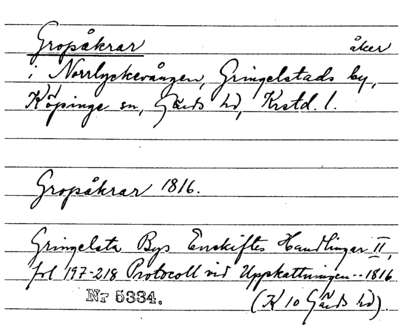 Gropåkrar åker
i Norrlyckevången, Gringelstads by,
Köpinge sn, Gärds hd, Krstd. l.
Gropåkrar 1816.
Gringelsta Bys Enskiftes Handlingar II,
fol 197-218 Protocoll vid Uppskattningen -- 1816
Nr 5334. (K 10 Gärds hd).